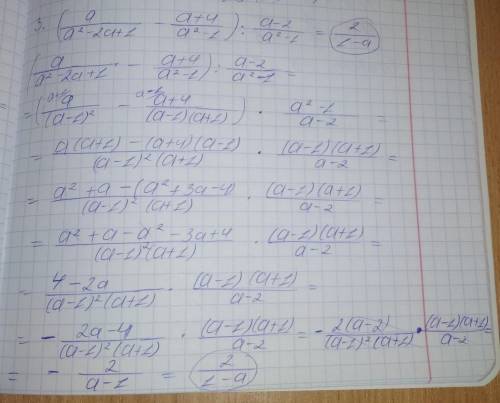 3. (a/(a²-2a+1) - (a+4)/(a²-1)) : (a-2)/(a²-1) = 2/(1-a)
(a/(a²-2a+1) - (a+4)/(a²-1)) : (a-2)/(a²-1) =
= (ᵃ⁺¹⁾a/(a-1)² - ᵃ⁻¹⁾(a+4)/((a-1)(a+1))) · (a²-1)/(a-2) =
= (a(a+1)-(a+4)(a-1))/((a-1)²(a+1)) · ((a-1)(a+1))/(a-2) =
= (a²+a-(a²+3a-4))/((a-1)²(a+1)) · ((a-1)(a+1))/(a-2) =
= (a²+a-a²-3a+4)/((a-1)²(a+1)) · ((a-1)(a+1))/(a-2) =
= (4-2a)/((a-1)²(a+1)) · ((a-1)(a+1))/(a-2) =
= - (2a-4)/((a-1)²(a+1)) · ((a-1)(a+1))/(a-2) = - (2(a-2))/((a-1)²(a+1)) · ((a-1)(a+1))/(a-2) =
= - 2/(a-1) = 2/(1-a)